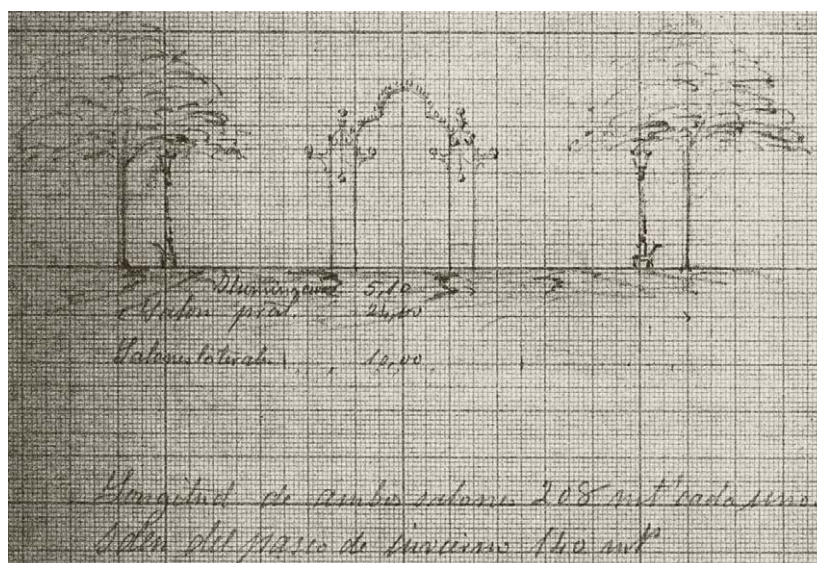 Iluminacion 5,10
Salon pral. 24,00
Salones laterales 10,00
Longitud de ambos salones 208 mt.s cada uno.
Iden del paseo de invierno 140 mt.s